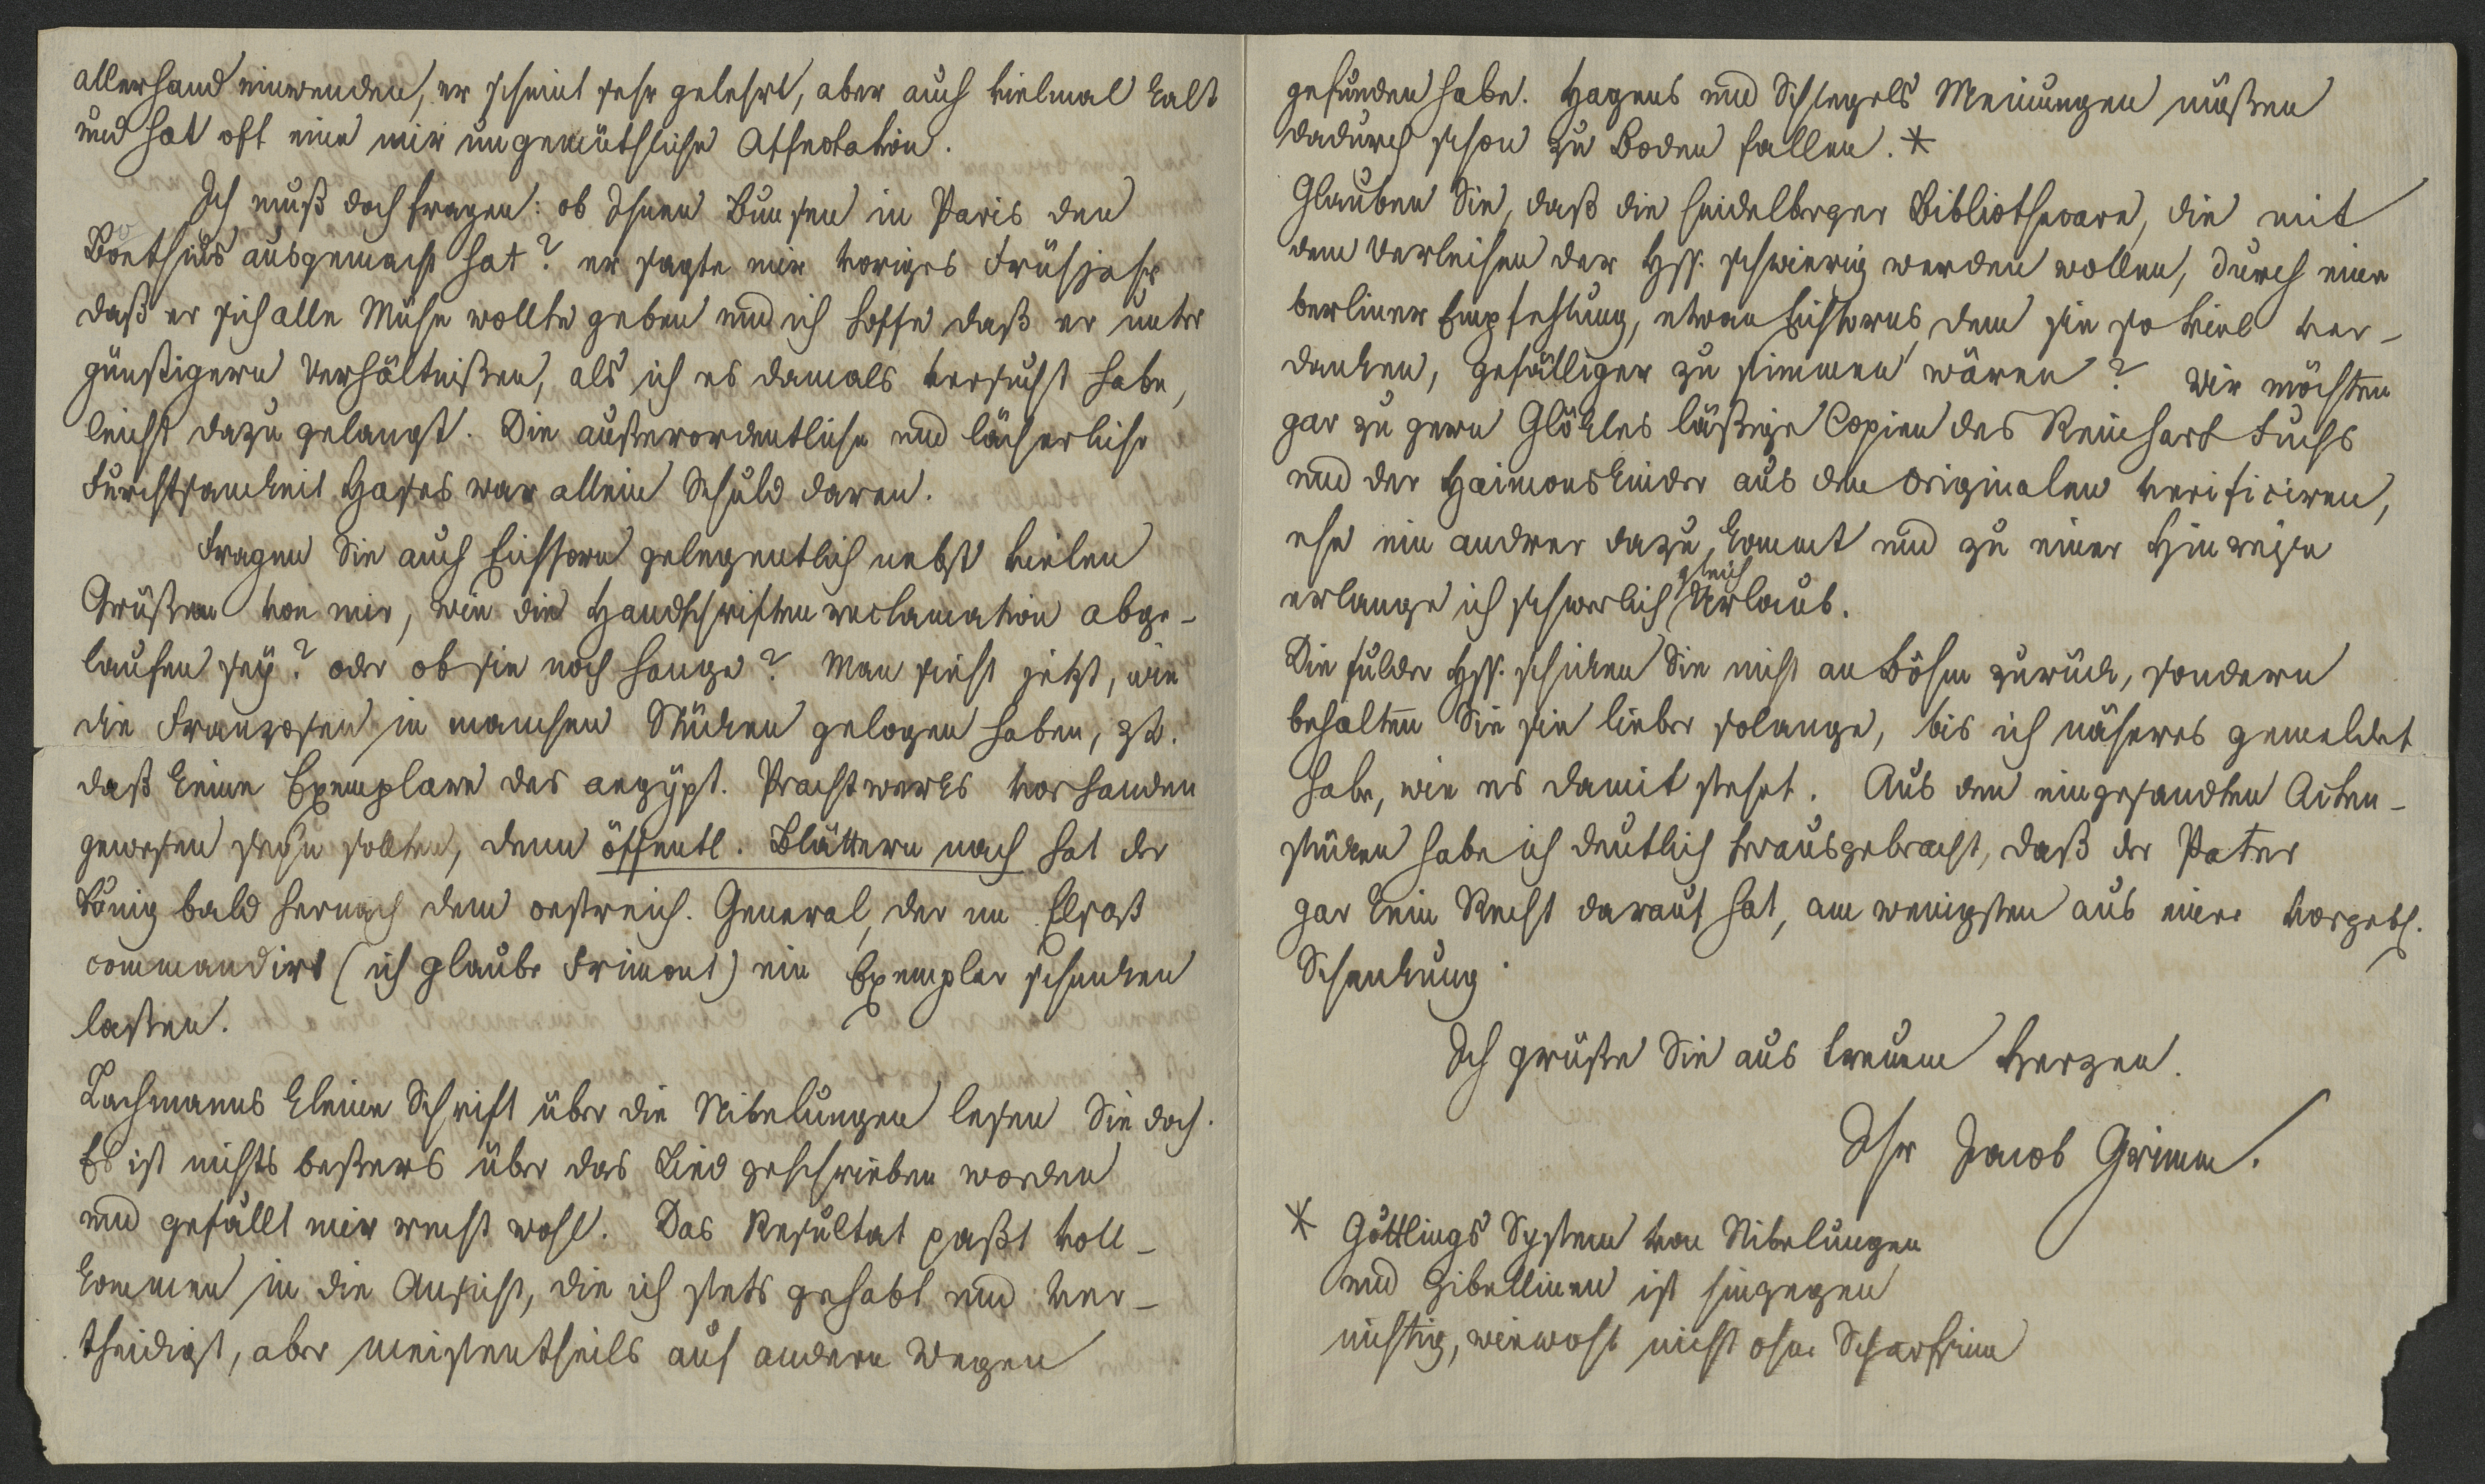 allerhand einwenden, er scheint sehr gelehrt, aber auch vielmal kalt
und hat oft eine mir ungemüthliche Affectation.
Ich muß doch fragen: ob Ihnen Bunsen in Paris den
Boethius ausgemacht hat? er sagte mir voriges Frühjahr
daß er sich alle Mühe wollte geben und ich hoffe daß er unter
günstigern Verhältnißen, als ich es damals versucht habe,
leicht dazu gelangt. Die außerordentliche und lächerliche
Furchtsamkeit Hases war allein Schuld daran.
Fragen Sie auch Eichhorn gelegentlich nebst vielen
Grüßen von mir, wie die Handschriften reclamation abge-
laufen sey? oder ob sie noch hange? Man sieht jetzt, wie
die Franzosen in manchen Stücken gelogen haben, zb.
daß keine Exemplare des aegypt. Prachtwerks vorhanden
gewesen seyn sollten, denn öffentl. Blättern nach hat der
König bald hernach dem oestreich. General, der im Elsaß
commandirt (ich glaube Frimont) ein Exemplar schenken
laßen.
Lachmanns kleine Schrift über die Nibelungen lesen Sie doch.
Es ist nichts beßeres über das Lied geschrieben worden
und gefällt mir recht wohl. Das Resultat paßt voll-
kommen in die Ansicht, die ich stets gehabt und ver-
theidigt, aber meistentheils auf andern Wegen
gefunden habe. Hagens und Schlegels Meinungen müßen
dadurch schon zu Boden fallen. *
Glauben Sie, daß die heidelberger Bibliothecare, die mit
dem Verleihen der Hss. schwierig werden wollen, durch eine
berliner Empfehlung, etwan Eichhorns, dem sie so viel ver-
danken, gefälliger zu stimmen wären? Wir möchten
gar zu gern Glökles läßige Copien des Reinhart Fuchs
und der Haimonskinder aus den Originalen verificiren,
ehe ein andrer dazu kommt und zu einer Hinreise
erlange ich schwerlich gleich Urlaub.
Die fulder Hss. schicken Sie nicht an Böhm zurück, sondern
behalten Sie sie lieber solange, bis ich näheres gemeldet
habe, wie es damit stehet. Aus den eingesandten Acten-
stücken habe ich deutlich herausgebracht, daß der Pater
gar kein Recht darauf hat, am wenigsten aus einer vorgebl.
Schenkung.
Ich grüße Sie aus treuem Herzen.
Ihr Jacob Grimm.
* Göttlings System von Nibelungen
und Gibellinen ist hingegen
nichtig, wiewohl nicht ohne Scharfsinn